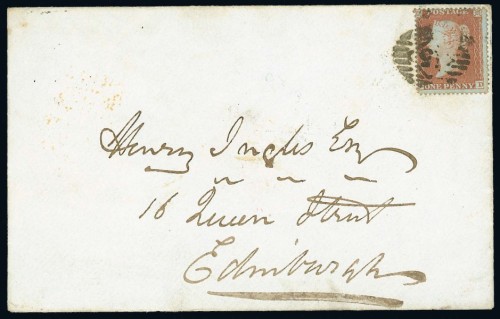 POSTAGE
ONE PENNY
Henry Inglis Esq
16 Queen Street
Edinburgh